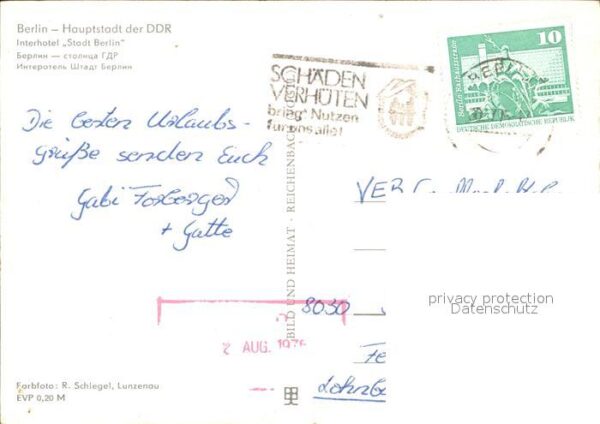 Berlin – Hauptstadt der DDR
Interhotel „Stadt Berlin"
Берлин — столица ГДР
Интеротель Штадт Берлин
SCHÄDEN
VERHÜTEN
bringt Nutzen
für uns alle!
BERLIN
10
Berlin, Rathausstraße
DEUTSCHE DEMOKRATISCHE REPUBLIK
Die besten Urlaubs-
grüße senden Euch
Gabi
+ Gatte
BILD UND HEIMAT · REICHENBACH
8030
privacy protection
Datenschutz
2 AUG. 1976
Farbfoto: R. Schlegel, Lunzenau
EVP 0,20 M